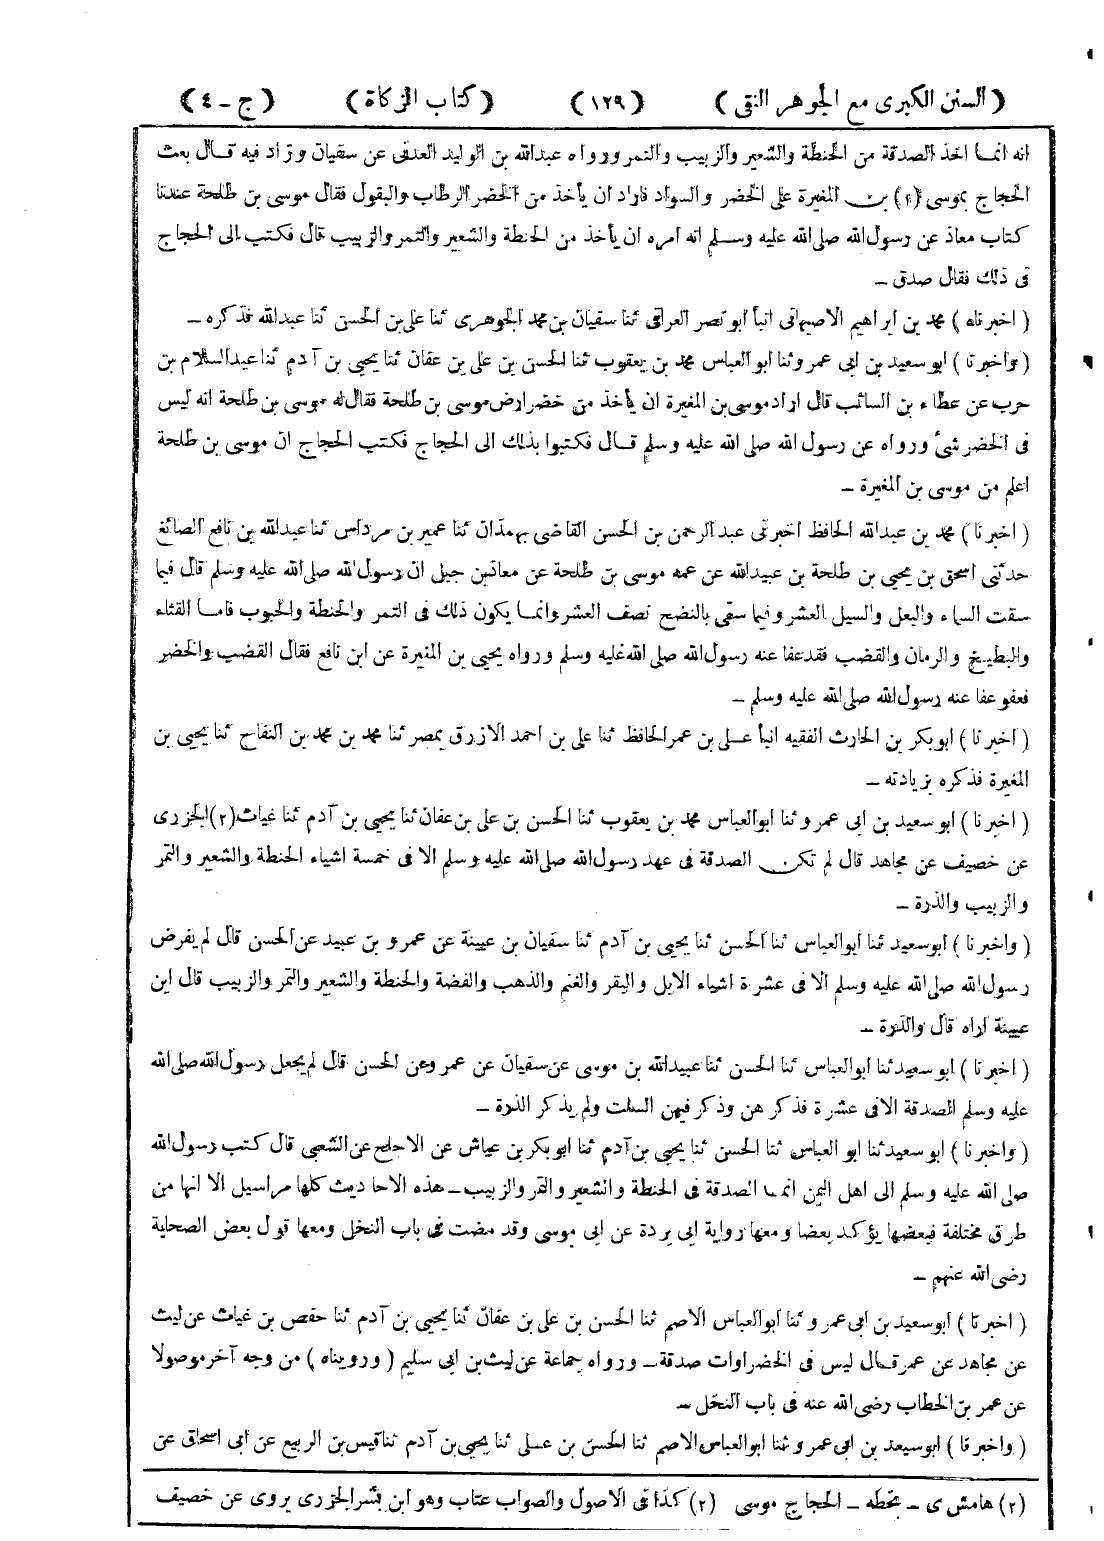 ( السنن الكبرى مع الجوهر النقى ) ( ١٢٩ ) ( كتاب الزكاة ) ( ج ـ ٤ )
انه انما اخذ الصدقة من الحنطة والشعير والزبيب والتمر ورواه عبدالله بن الوليد العدنى عن سفيان وزاد فيه قال بعث
الحجاج بموسى (١) بن المغيرة على الخضر والسواد فاراد ان يأخذ من الخضر الرطاب والبقول فقال موسى بن طلحة عندنا
كتاب معاذ عن رسول الله صلى الله عليه وسلم انه امره ان يأخذ من الحنطة والشعير والتمر والزبيب قال فكتب الى الحجاج
فى ذلك فقال صدق ـ
( اخبرناه ) محمد بن ابراهيم الاصبهانى انبأ ابو نصر العراقى ثنا سفيان بن محمد الجوهرى ثنا على بن الحسن ثنا عبدالله فذكره ـ
( واخبرنا ) ابو سعيد بن ابى عمرو ثنا ابو العباس محمد بن يعقوب ثنا الحسن بن على بن عفان ثنا يحيى بن آدم ثنا عبدالسلام بن
حرب عن عطاء بن السائب قال اراد موسى بن المغيرة ان يأخذ من خضر ارض موسى بن طلحة فقال له موسى بن طلحة انه ليس
فى الخضر شئ ورواه عن رسول الله صلى الله عليه وسلم قال فكتبوا بذلك الى الحجاج فكتب الحجاج ان موسى بن طلحة
اعلم من موسى بن المغيرة ـ
( اخبرنا ) محمد بن عبدالله الحافظ اخبرنى عبد الرحمن بن الحسن القاضى بهمذان ثنا عمير بن مرداس ثنا عبدالله بن نافع الصائغ
حدثنى اسحق بن يحيى بن طلحة بن عبيدالله عن عمه موسى بن طلحة عن معاذ بن جبل ان رسول الله صلى الله عليه وسلم قال فيما
سقت السماء والبعل والسيل العشر وفيما سقى بالنضح نصف العشر وانما يكون ذلك فى التمر والحنطة والحبوب فاما القثاء
والبطيخ والرمان والقضب فقد عفا عنه رسول الله صلى الله عليه وسلم ورواه يحيى بن المغيرة عن ابن نافع فقال القضب والخضر
فعفو عفا عنه رسول الله صلى الله عليه وسلم ـ
( اخبرنا ) ابوبكر بن الحارث الفقيه انبأ على بن عمر الحافظ ثنا على بن احمد الازرق بمصر ثنا محمد بن محمد بن النفاح ثنا يحيى بن
المغيرة فذكره بزيادته ـ
( اخبرنا ) ابو سعيد بن ابى عمرو ثنا ابوالعباس محمد بن يعقوب ثنا الحسن بن على بن عفان ثنا يحيى بن آدم ثنا غياث (٢) الجزرى
عن خصيف عن مجاهد قال لم تكن الصدقة فى عهد رسول الله صلى الله عليه وسلم الا فى خمسة اشياء الحنطة والشعير والتمر
والزبيب والذرة ـ
( واخبرنا ) ابو سعيد ثنا ابوالعباس ثنا الحسن ثنا يحيى بن آدم ثنا سفيان بن عيينة عن عمرو بن عبيد عن الحسن قال لم يفرض
رسول الله صلى الله عليه وسلم الا فى عشرة اشياء الابل والبقر والغنم والذهب والفضة والحنطة والشعير والتمر والزبيب قال ابن
عيينة اراه قال والذرة ـ
( اخبرنا ) ابو سعيد ثنا ابوالعباس ثنا الحسن ثنا عبيدالله بن موسى عن سفيان عن عمرو عن الحسن قال لم يجعل رسول الله صلى الله
عليه وسلم الصدقة الا فى عشرة فذكر هن وذكر فيهن السلت ولم يذكر الذرة ـ
( واخبرنا ) ابو سعيد ثنا ابو العباس ثنا الحسن ثنا يحيى بن آدم ثنا ابوبكر بن عياش عن الاجلح عن الشعبى قال كتب رسول الله
صلى الله عليه وسلم الى اهل اليمن انما الصدقة فى الحنطة والشعير والتمر والزبيب ـ هذه الاحاديث كلها مراسيل الا انها من
طرق مختلفة فبعضها يؤكد بعضا ومعها رواية ابى بردة عن ابى موسى وقد مضت فى باب النخل ومعها قول بعض الصحابة
رضى الله عنهم ـ
( اخبرنا ) ابوسعيد بن ابى عمرو ثنا ابوالعباس الاصم ثنا الحسن بن على بن عفان ثنا يحيى بن آدم ثنا حفص بن غياث عن ليث
عن مجاهد عن عمر قال ليس فى الخضراوات صدقة ـ ورواه جماعة عن ليث بن ابى سليم ( ورويناه ) من وجه آخر موصولا
عن عمر بن الخطاب رضى الله عنه فى باب النخل ـ
( واخبرنا ) ابوسيعد بن ابى عمرو ثنا ابوالعباس الاصم ثنا الحسن بن على ثنا يحيى بن آدم ثنا قيس بن الربيع عن ابى اسحاق عن
(٢) هامش ى ـ بخطه ـ الحجاج موسى (٢) كذا فى الاصول والصواب عتاب وهو ابن بشر الجزرى يروى عن خصيف